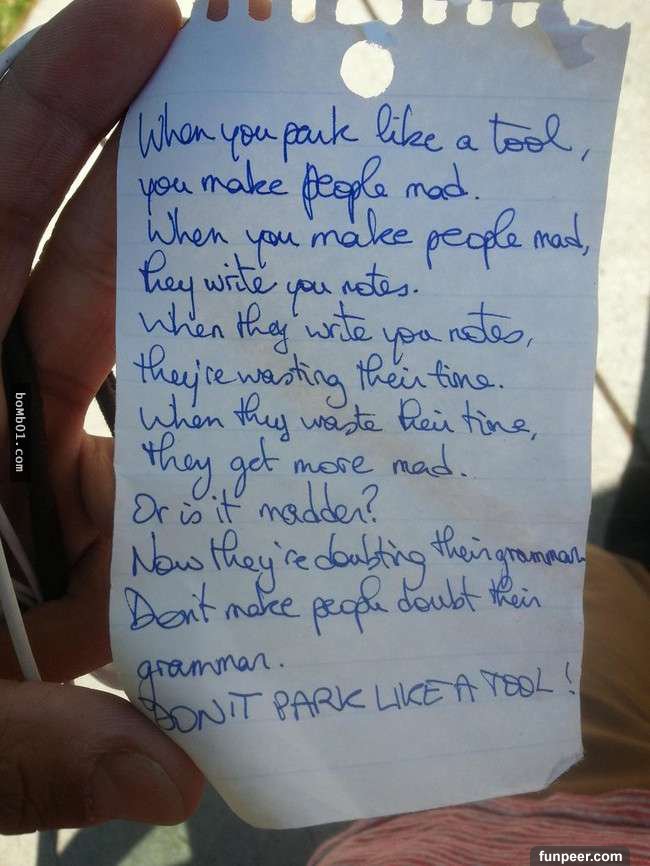 When you park like a tool,
you make people mad.
When you make people mad,
they write you notes.
When they write you notes,
they're wasting their time.
When they waste their time,
they get more mad.
Or is it madder?
Now they're doubting their grammar
Don't make people doubt their
grammar.
DON'T PARK LIKE A TOOL!
bomb01.com
funpeer.com